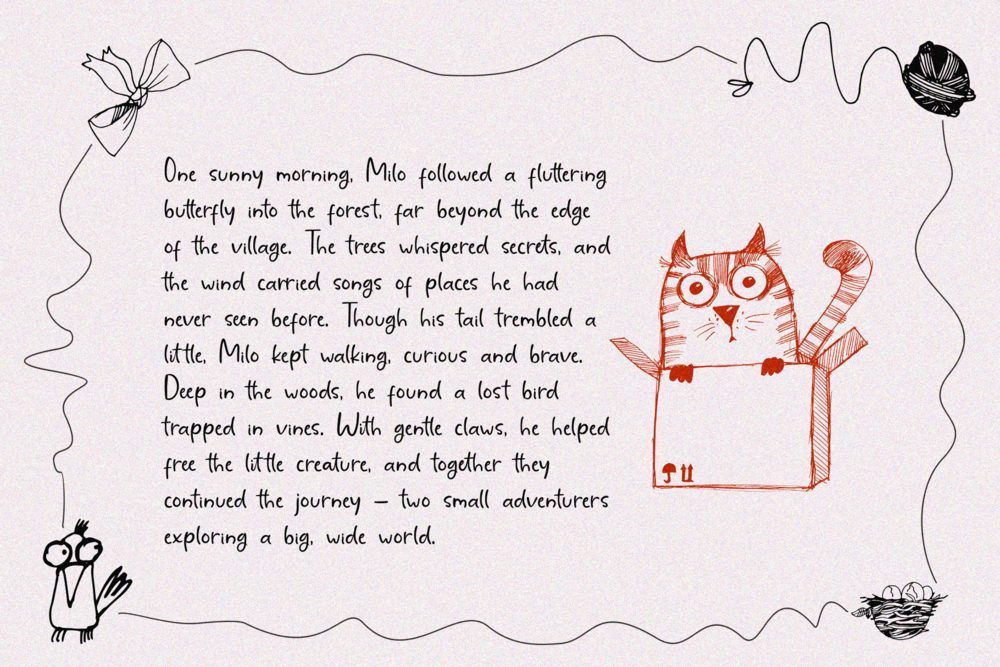 One sunny morning, Milo followed a fluttering
butterfly into the forest, far beyond the edge
of the village. The trees whispered secrets, and
the wind carried songs of places he had
never seen before. Though his tail trembled a
little, Milo kept walking, curious and brave.
Deep in the woods, he found a lost bird
trapped in vines. With gentle claws, he helped
free the little creature, and together they
continued the journey – two small adventurers
exploring a big, wide world.